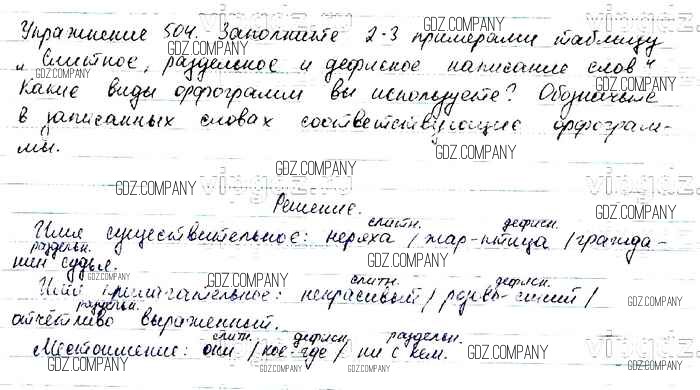 Упражнение 504. Заполните 2-3 примерами таблицу
„Слитное, раздельное и дефисное написание слов"
Какие виды орфограмм вы используете? Обозначьте
в записанных словах соответствующие орфограм-
мы.
Решение.
слитн. дефисн.
Имя существительное: неряха / жар-птица / гражда-
раздельн.
нин судья.
слитн. дефисн.
Имя прилагательное: некрасивый / розово-синий /
раздельн.
отчётливо выраженный.
слитн. дефисн. раздельн.
Местоимение: они / кое-где / ни с кем.
GDZ.COMPANY
vipgdz.ru